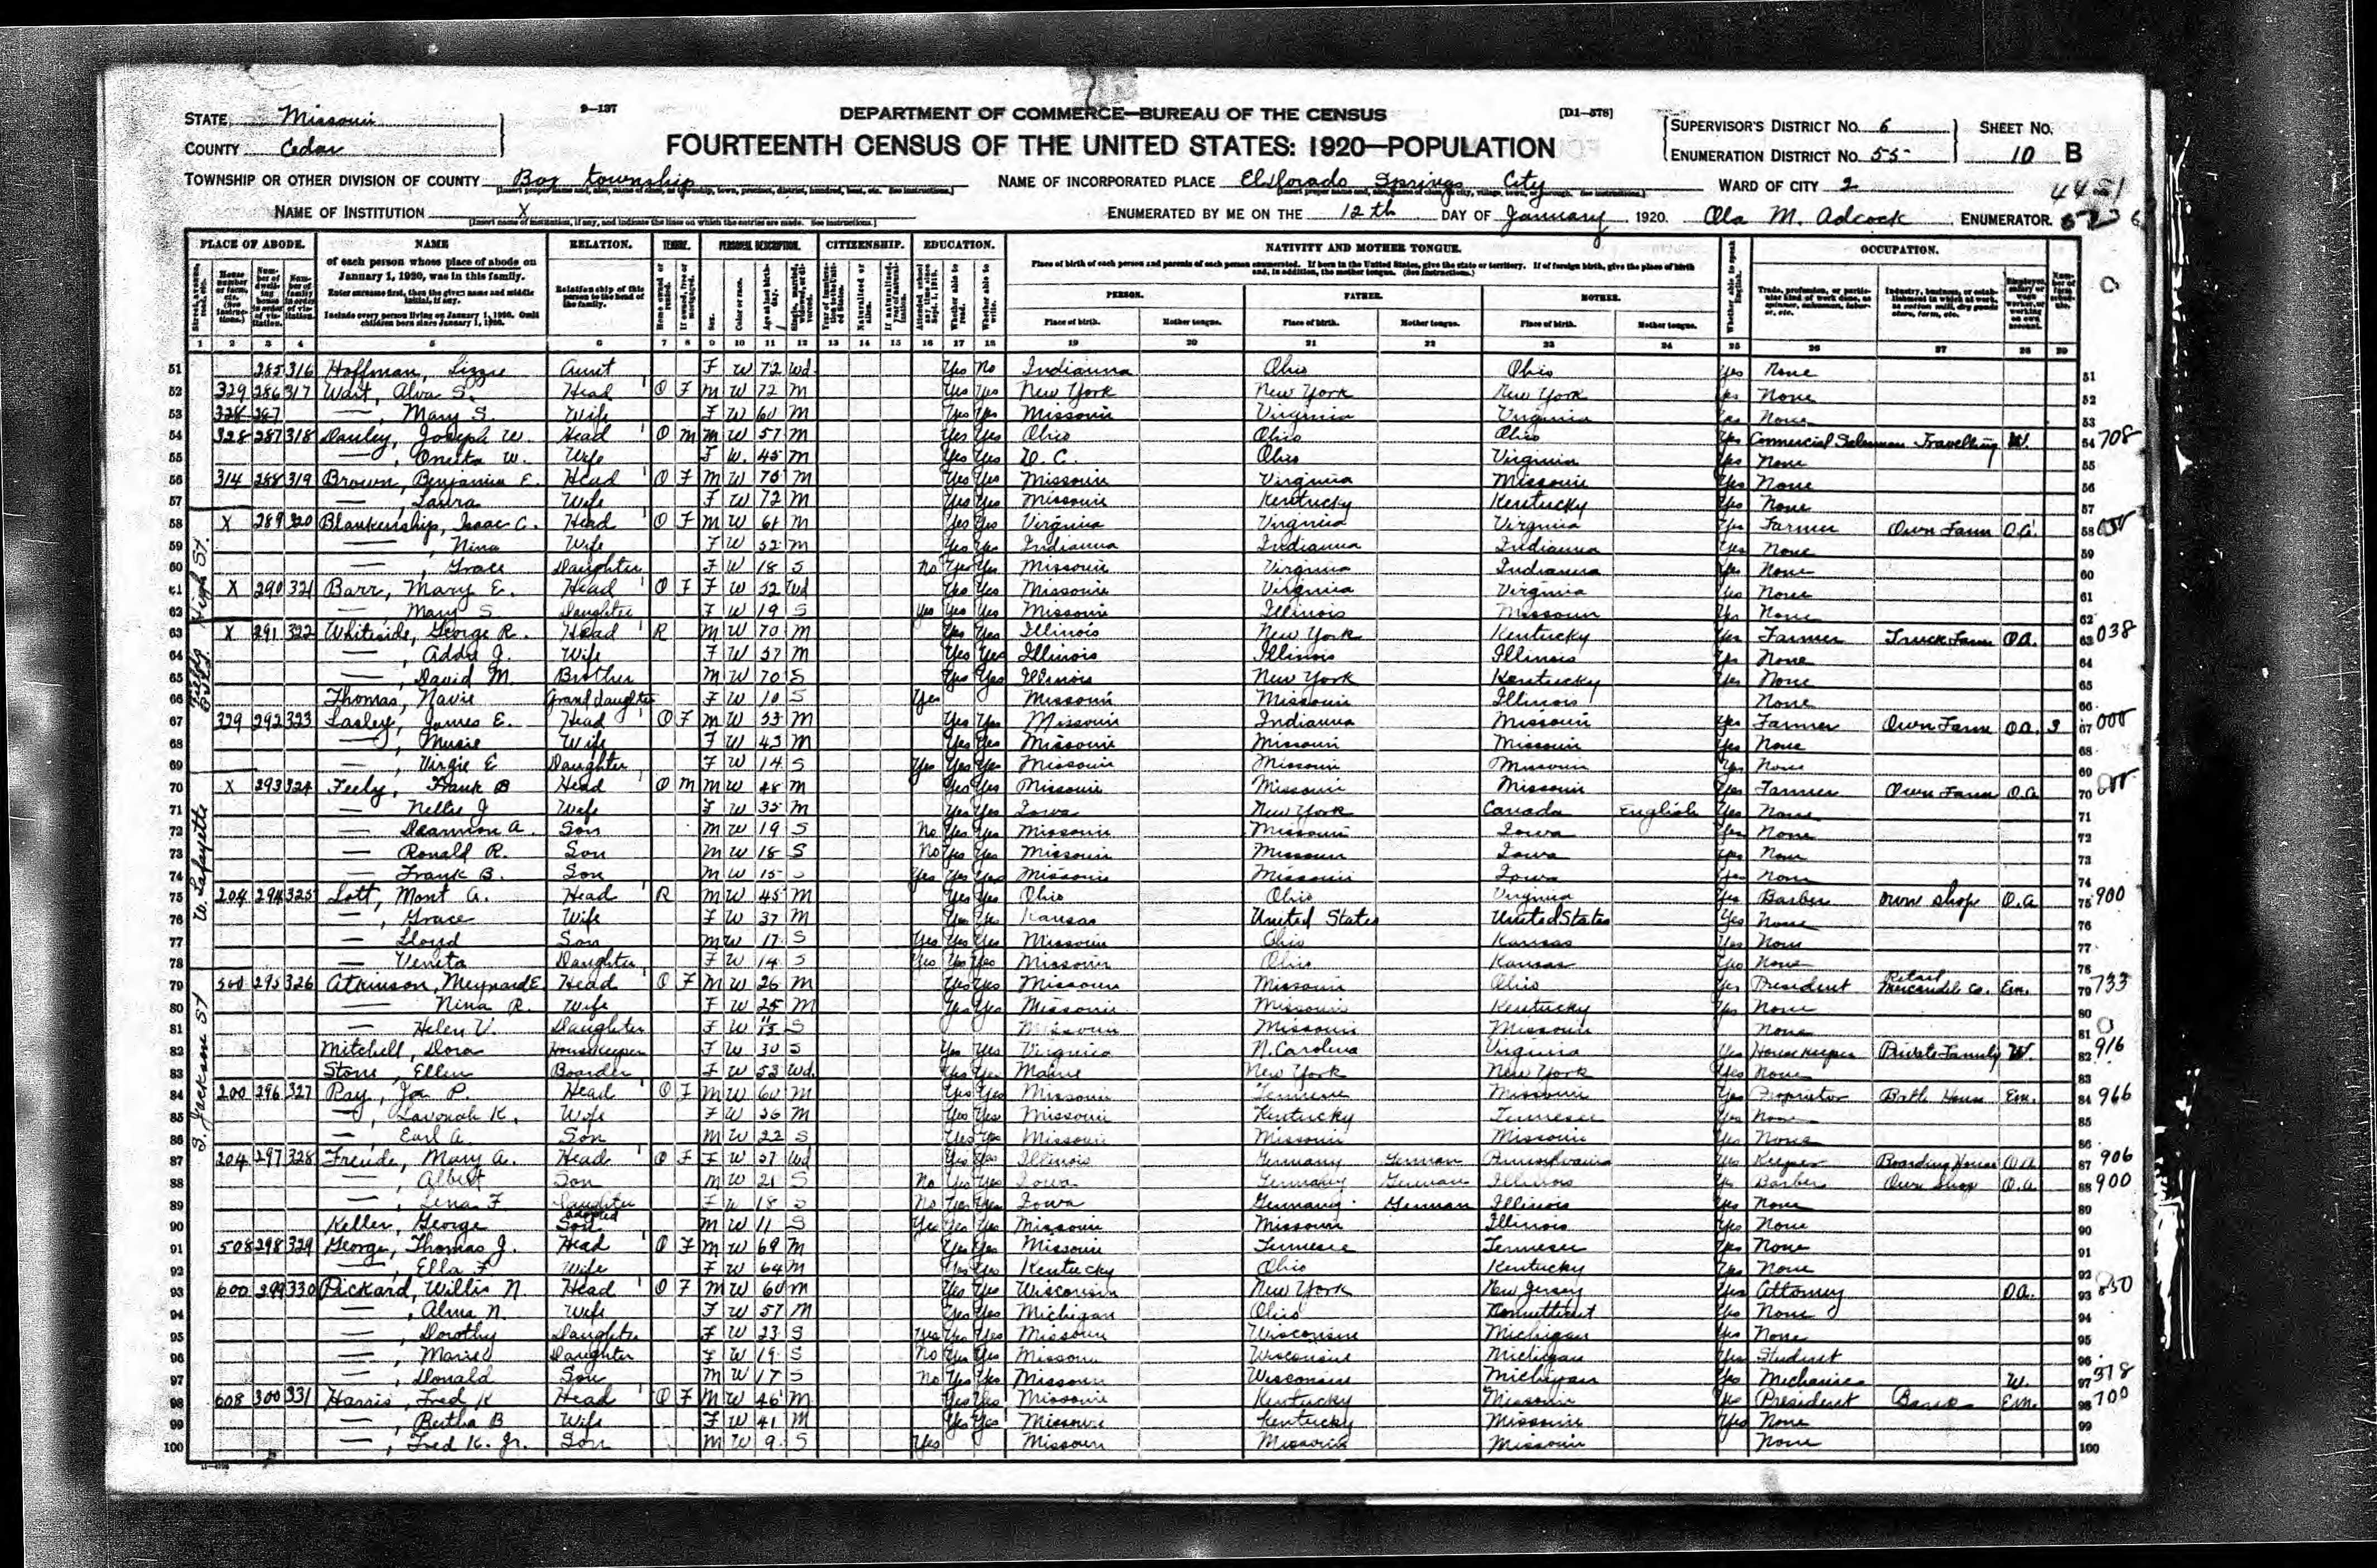 9—137
DEPARTMENT OF COMMERCE—BUREAU OF THE CENSUS
[D1—578]
STATE Missouri
COUNTY Cedar
FOURTEENTH CENSUS OF THE UNITED STATES: 1920—POPULATION
SUPERVISOR'S DISTRICT No. 6
ENUMERATION DISTRICT No. 55
SHEET No. 10 B
TOWNSHIP OR OTHER DIVISION OF COUNTY Box township
NAME OF INCORPORATED PLACE ElDorado Springs City
WARD OF CITY 2
NAME OF INSTITUTION X
ENUMERATED BY ME ON THE 12th DAY OF January, 1920. Ola M. Adcock ENUMERATOR.
PLACE OF ABODE. NAME RELATION. TENURE. PERSONAL DESCRIPTION. CITIZENSHIP. EDUCATION. NATIVITY AND MOTHER TONGUE. OCCUPATION.
of each person whose place of abode on January 1, 1920, was in this family.
Enter surname first, then the given name and middle initial, if any.
Include every person living on January 1, 1920. Omit children born since January 1, 1920.
Relationship of this person to the head of the family.
Place of birth of each person and parents of each person enumerated. If born in the United States, give the state or territory. If of foreign birth, give the place of birth and, in addition, the mother tongue. (See instructions.)
PERSON. FATHER. MOTHER.
Place of birth. Mother tongue. Place of birth. Mother tongue. Place of birth. Mother tongue.
1 2 3 4 5 6 7 8 9 10 11 12 13 14 15 16 17 18 19 20 21 22 23 24 25 26 27 28 29
51 285 316 Hoffman, Lizzie Aunt F W 72 Wd Yes No Indianna Ohio Ohio Yes None 51
52 329 286 317 Wait, Alva S. Head O F M W 72 M Yes Yes New York New York New York Yes None 52
53 328 287 —, Mary S. Wife F W 60 M Yes Yes Missouri Virginia Virginia Yes None 53
54 328 287 318 Danley, Joseph W. Head O M M W 57 M Yes Yes Ohio Ohio Ohio Yes Commercial Salesman Travelling W. 54 708
55 —, Oneita W. Wife F W 45 M Yes Yes D. C. Ohio Virginia Yes None 55
56 314 288 319 Brown, Benjamin E. Head O F M W 75 M Yes Yes Missouri Virginia Missouri Yes None 56
57 —, Laura Wife F W 72 M Yes Yes Missouri Kentucky Kentucky Yes None 57
58 X 289 320 Blankenship, Isaac C. Head O F M W 61 M Yes Yes Virginia Virginia Virginia Yes Farmer Own Farm O.A. 58
59 —, Nina Wife F W 52 M Yes Yes Indianna Indianna Indianna Yes None 59
60 —, Grace Daughter F W 18 S No Yes Yes Missouri Virginia Indianna Yes None 60
61 X 290 321 Barr, Mary E. Head O F F W 52 Wd Yes Yes Missouri Virginia Virginia Yes None 61
62 — Mary S. Daughter F W 19 S Yes Yes Yes Missouri Illinois Missouri Yes None 62
63 X 291 322 Whiteside, George R. Head R M W 70 M Yes Yes Illinois New York Kentucky Yes Farmer Truck Farm O.A. 63 038
64 —, Addie J. Wife F W 57 M Yes Yes Illinois Illinois Illinois Yes None 64
65 —, David M. Brother M W 70 S Yes Yes Illinois New York Kentucky Yes None 65
66 Thomas, Navie Grand daughter F W 10 S Yes Missouri Missouri Illinois None 66
67 329 292 323 Lasley, James E. Head O F M W 53 M Yes Yes Missouri Indianna Missouri Yes Farmer Own Farm O.A. 3 67
68 —, Musie Wife F W 43 M Yes Yes Missouri Missouri Missouri Yes None 68
69 —, Virgie E Daughter F W 14 S Yes Yes Yes Missouri Missouri Missouri Yes None 69
70 X 293 324 Feely, Frank B Head O M M W 48 M Yes Yes Missouri Missouri Missouri Yes Farmer Own Farm O.A 70
71 — Nellie J Wife F W 35 M Yes Yes Iowa New York Canada English Yes None 71
72 — A. Son M W 19 S No Yes Yes Missouri Missouri Iowa Yes None 72
73 — Ronald R. Son M W 18 S No Yes Yes Missouri Missouri Iowa Yes None 73
74 — Frank B. Son M W 15 S Yes Yes Yes Missouri Missouri Iowa Yes None 74
75 204 294 325 Lott, Mont A. Head R M W 45 M Yes Yes Ohio Ohio Virginia Yes Barber own shop O.A 75 900
76 —, Grace Wife F W 37 M Yes Yes Kansas United States United States Yes None 76
77 — Lloyd Son M W 17 S Yes Yes Yes Missouri Ohio Kansas Yes None 77
78 — Veneta Daughter F W 14 S Yes Yes Yes Missouri Ohio Kansas Yes None 78
79 500 295 326 Atkinson, Meynard E Head O F M W 26 M Yes Yes Missouri Missouri Ohio Yes President Retail Mercantile Co. Em. 79 733
80 — Nina R. Wife F W 25 M Yes Yes Missouri Missouri Kentucky Yes None 80
81 — Helen V. Daughter F W S Missouri Missouri Missouri None 81
82 Mitchell, Dora Housekeeper F W 30 S Yes Yes Virginia N. Carolina Virginia Yes Housekeeper Private Family W. 82 916
83 Stone, Ellen Boarder F W 53 Wd. Yes Yes Maine New York New York Yes None 83
84 200 296 327 Ray, P. Head O F M W 60 M Yes Yes Missouri Tennesee Missouri Yes Proprietor Bath House Em. 84 966
85 —, K. Wife F W 56 M Yes Yes Missouri Kentucky Tennesee Yes None 85
86 — Earl A. Son M W 22 S Yes Yes Missouri Missouri Missouri Yes None 86
87 204 297 328 Freude, Mary A. Head O F F W 57 Wd Yes Yes Illinois Germany German Pennsylvania Yes Keeper Boarding House O.A 87 906
88 —, Albert Son M W 21 S No Yes Yes Iowa Germany German Illinois Yes Barber Own Shop O.A 88 900
89 —, Lena F Daughter F W 18 S No Yes Yes Iowa Germany German Illinois Yes None 89
90 Keller, George adopted Son M W 11 S Yes Yes Yes Missouri Missouri Illinois Yes None 90
91 508 298 329 George, Thomas J. Head O F M W 69 M Yes Yes Missouri Tennesee Tennesee Yes None 91
92 —, Ella F Wife F W 64 M Yes Yes Kentucky Ohio Kentucky Yes None 92
93 600 299 330 Pickard, Willis N. Head O F M W 60 M Yes Yes Wisconsin New York New Jersey Yes Attorney O.A. 93
94 —, Alma N. Wife F W 57 M Yes Yes Michigan Ohio Connetticut Yes None 94
95 —, Dorothy Daughter F W 23 S Yes Yes Yes Missouri Wisconsin Michigan Yes None 95
96 —, Marie Daughter F W 19 S No Yes Yes Missouri Wisconsin Michigan Yes Student 96
97 —, Donald Son M W 17 S No Yes Yes Missouri Wisconsin Michigan Yes Mechanic W. 97
98 608 300 331 Harris, Fred K Head O F M W 46 M Yes Yes Missouri Kentucky Missouri Yes President Bank Em. 98 700
99 —, Bertha B Wife F W 41 M Yes Yes Missouri Kentucky Missouri Yes None 99
100 —, Fred K. Jr. Son M W 9 S Yes Missouri Missouri Missouri None 100
High St.
W. Lafayette
S. Jackson St